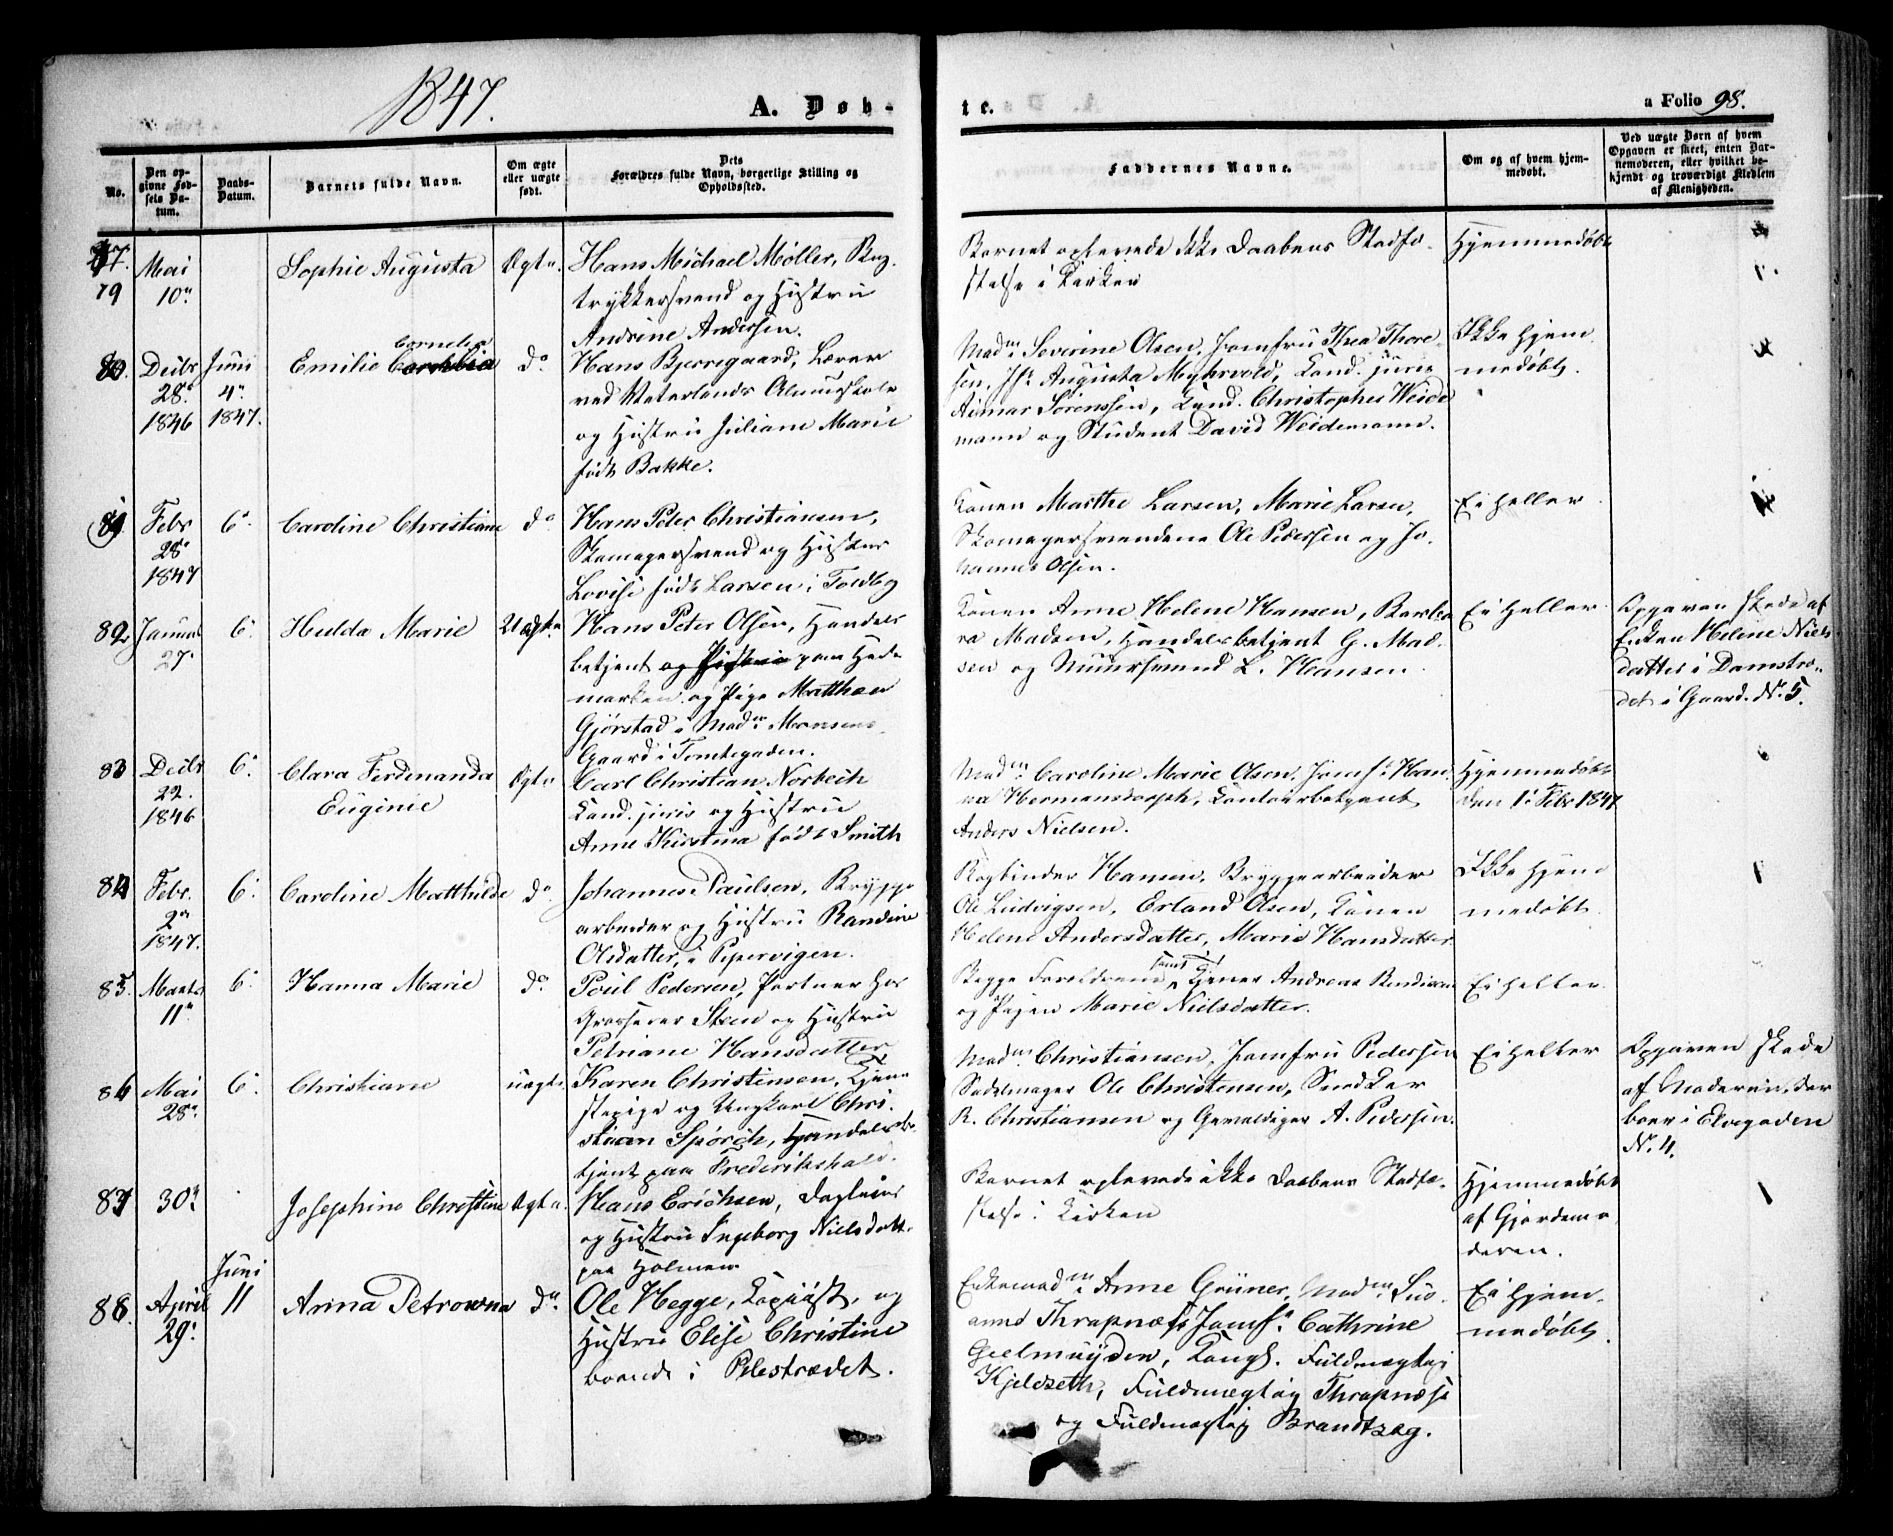 1847.
A. Døb-
te.
a Folio 98.
No.
Den op-
givne Fød-
sels Da-
tum.
Daabs-
Datum.
Barnets fulde Navn.
Om ægte
eller uægte
født.
Dets
Forældres fulde Navn, borgerlige Stilling og
Opholdssted.
Faddernes Navne.
Om og af hvem hjem-
medøbt.
Ved uægte Børn af hvem
Opgaven er skeet, enten Bar-
nemoderen, eller hvilket be-
kjendt og troværdigt Medlem
af Menigheden.
79
Mai
10.
Sophie Augusta
Ægte.
Hans Michael Møller, Bog-
trykkersvend og Hustru
Andrine Andersen.
Barnet oplevede ikke Daabens Stadfæ-
stelse i Kirken
Hjemmedøbt
80.
Decbr
28.
1846
Juni
4.
1847.
Emilie Cornelia
do
Hans Bjerregaard, Lærer
ved Vaterlands Almueskole
og Hustru Juliane Marie
født Bakke.
Madm Severine Olsen, Jomfru Thea Thore-
sen, Jfr Augusta Myhrvold, Kand. juris
Aimar Sørenssen, Kand. Christopher Weide-
mann og Student David Weidemann.
Ikke hjem
medøbt
81.
Febr
28
1847
6.
Caroline Christiane
do
Hans Peter Christiansen,
Skomagersvend og Hustru
Lovise født Larsen i Toldbg
Konen Marthe Larsen, Marie Larsen,
Skomagersvendene Ole Pedersen og Jo-
hannes Olsen.
Ei heller
82
Januar
27.
6.
Hulda Marie
Uægte
Hans Peter Olsen, Handels
betjent og Hustru paa Hede
marken og Pige Matthea
Gjørstad i Madm Monsens
Gaard i Tomtegaden.
Konen Anne Helene Hansen, Barba
ra Madsen, Handelsbetjent G. Mad
sen og Muursvend L. Hansen
Ei heller
Opgaven skede af
Enken Helene Niels
datter i Damstræ-
det i Gaard No 5.
83
Decbr
22.
1846
6.
Clara Ferdinanda
Eugenie
Ægte
Carl Christian Norbech
Kand. juris og Hustru
Anne Kirstina født Smith
Madm Caroline Marie Olsen, Jomf. Han-
na Hermansdorph, Contoirbetjent
Anders Nielsen.
Hjemmedøbt
den 1. Febr 1847
84
Febr.
2
1847.
6.
Caroline Matthilde
do
Johannes Paulsen, Brygge
arbeider og Hustru Randine
Olsdatter, i Pipervigen.
Bogbinder Hansen, Bryggearbeider
Ole Ludvigsen, Erland Olsen, Konen
Helene Andersdatter, Marie Hansdatter
Ikke hjem
medøbt
85.
Marts
11
6.
Hanna Marie
do
Poul Pedersen, Portner hos
Grosserer Steen og Hustru
Petriane Hansdatter
Begge Forældrene samt Tjener Andreas
og Pigen Marie Nielsdatter.
Ei heller.
86
Mai
28.
6.
Christiane
uægte
Karen Christensen, Tjene
stepige og Ungkarl Chri-
stian Spörch, Handelsbe
tjent paa Frederikshald.
Madm Christiansen, Jomfru Pedersen
Sadelmager Ole Christensen, Snedker
R. Christiansen og Gevaldiger A. Pedersen.
Ei heller
Opgaven skede
af Moderen, der
boer i Elvegaden
No 4.
87
30.
Josephine Christine
Ægte.
Hans Erichsen, Dagleier
og Hustru Ingeborg Nielsdatt.
paa Holmen
Barnet oplevede ikke Daabens Stadfæ-
stelse i Kirken
Hjemmedøbt
af Gjordemo
deren.
88.
April
29.
Juni
11
Anna Petrowna
do
Ole Hegge, Kopiist, og
Hustru Elise Christine
boende i Pilestrædet.
Enkemadm Anne Grüner, Madm Sus-
anne Thrapnæss Jomf. Cathrine
Geelmuyden, Kongl. Fuldmægtig
Kjeldseth, Fuldmægtig Thrapnæss
og Fuldmægtig Brandtzeg.
Ei hjem-
medøbt.